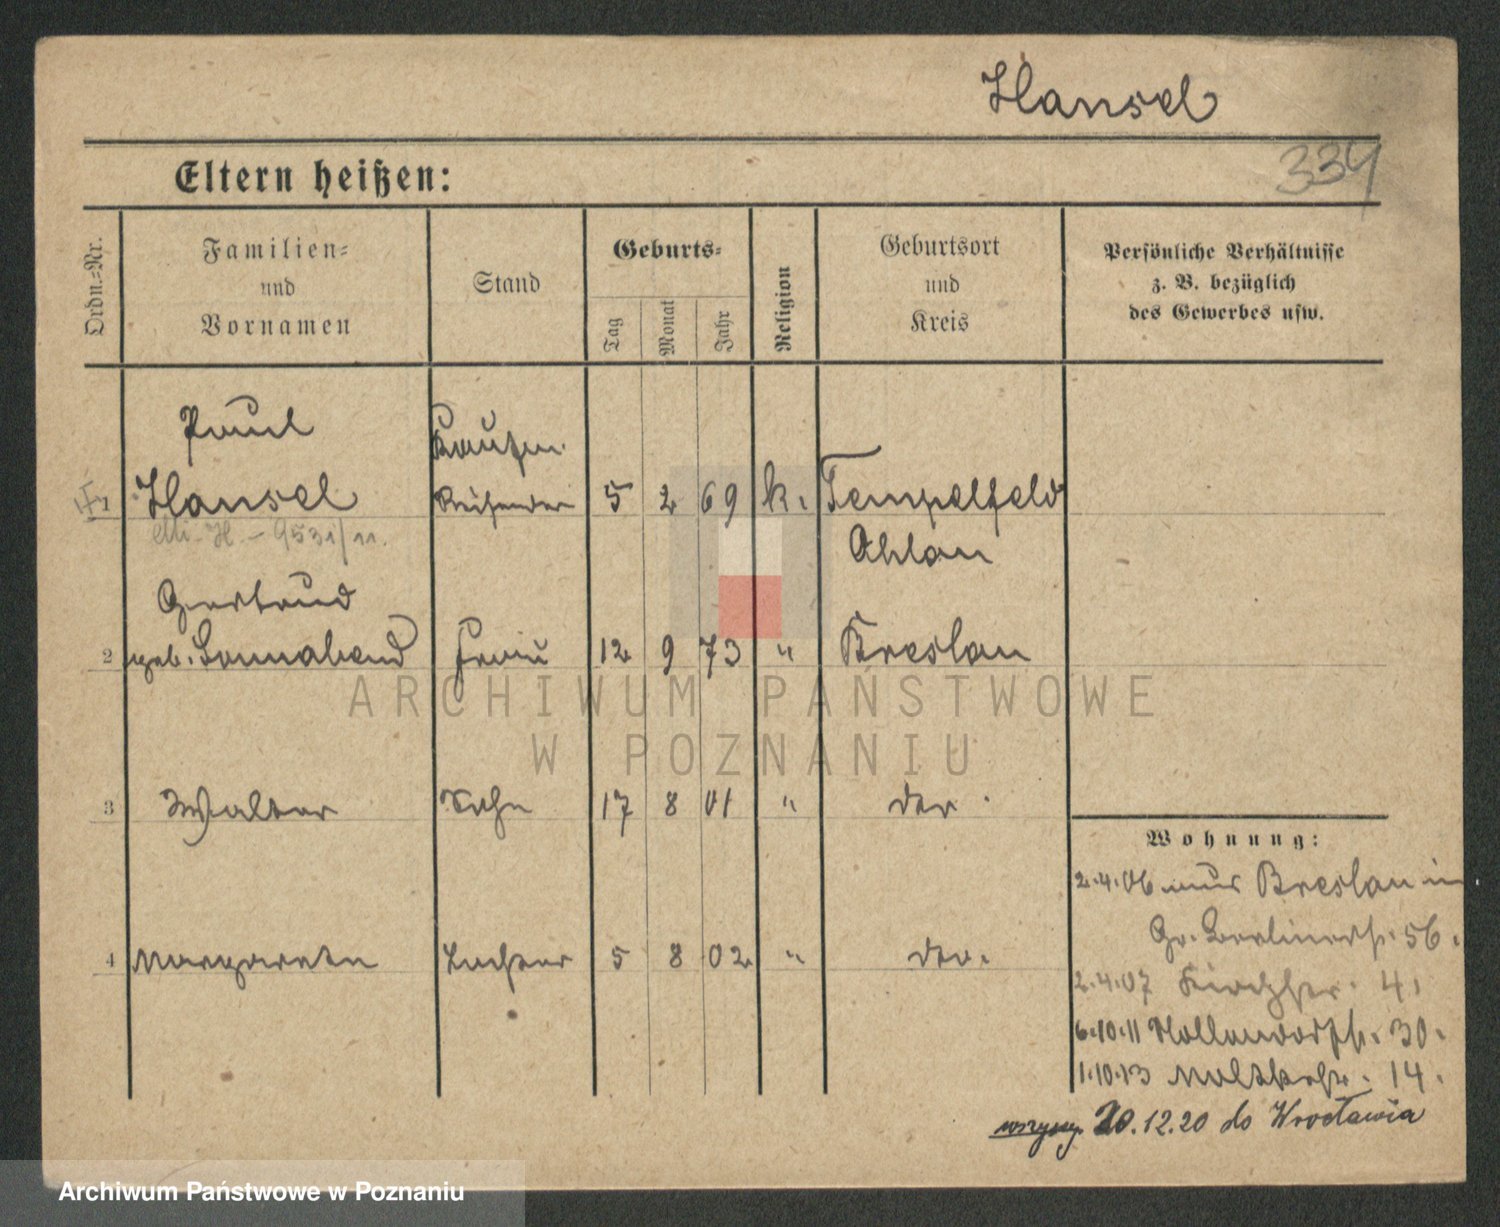 Hansel
334
Eltern heißen:
Ordn.-Nr.
Familien-
und
Vornamen
Stand
Geburts-
Tag
Monat
Jahr
Religion
Geburtsort
und
Kreis
Persönliche Verhältnisse
z. B. bezüglich
des Gewerbes usw.
Paul
Kaufm.
1 Hansel Reisender 5 2 69 k. Tempelfeld
9531/11.
Ohlau
Gertrud
2 geb. Sonnabend Frau 12 9 73 " Breslau
ARCHIWUM PAŃSTWOWE
W POZNANIU
3 Walter Sohn 17 8 01 " dto.
Wohnung:
2.4.06 aus Breslau in
Gr. Berlinerstr. 56.
4 Margarete Tochter 5 8 02 " dto.
2.4.07 4,
6.10.11 30.
1.10.13 Moltkestr. 14.
20.12.20 do Wrocławia
Archiwum Państwowe w Poznaniu